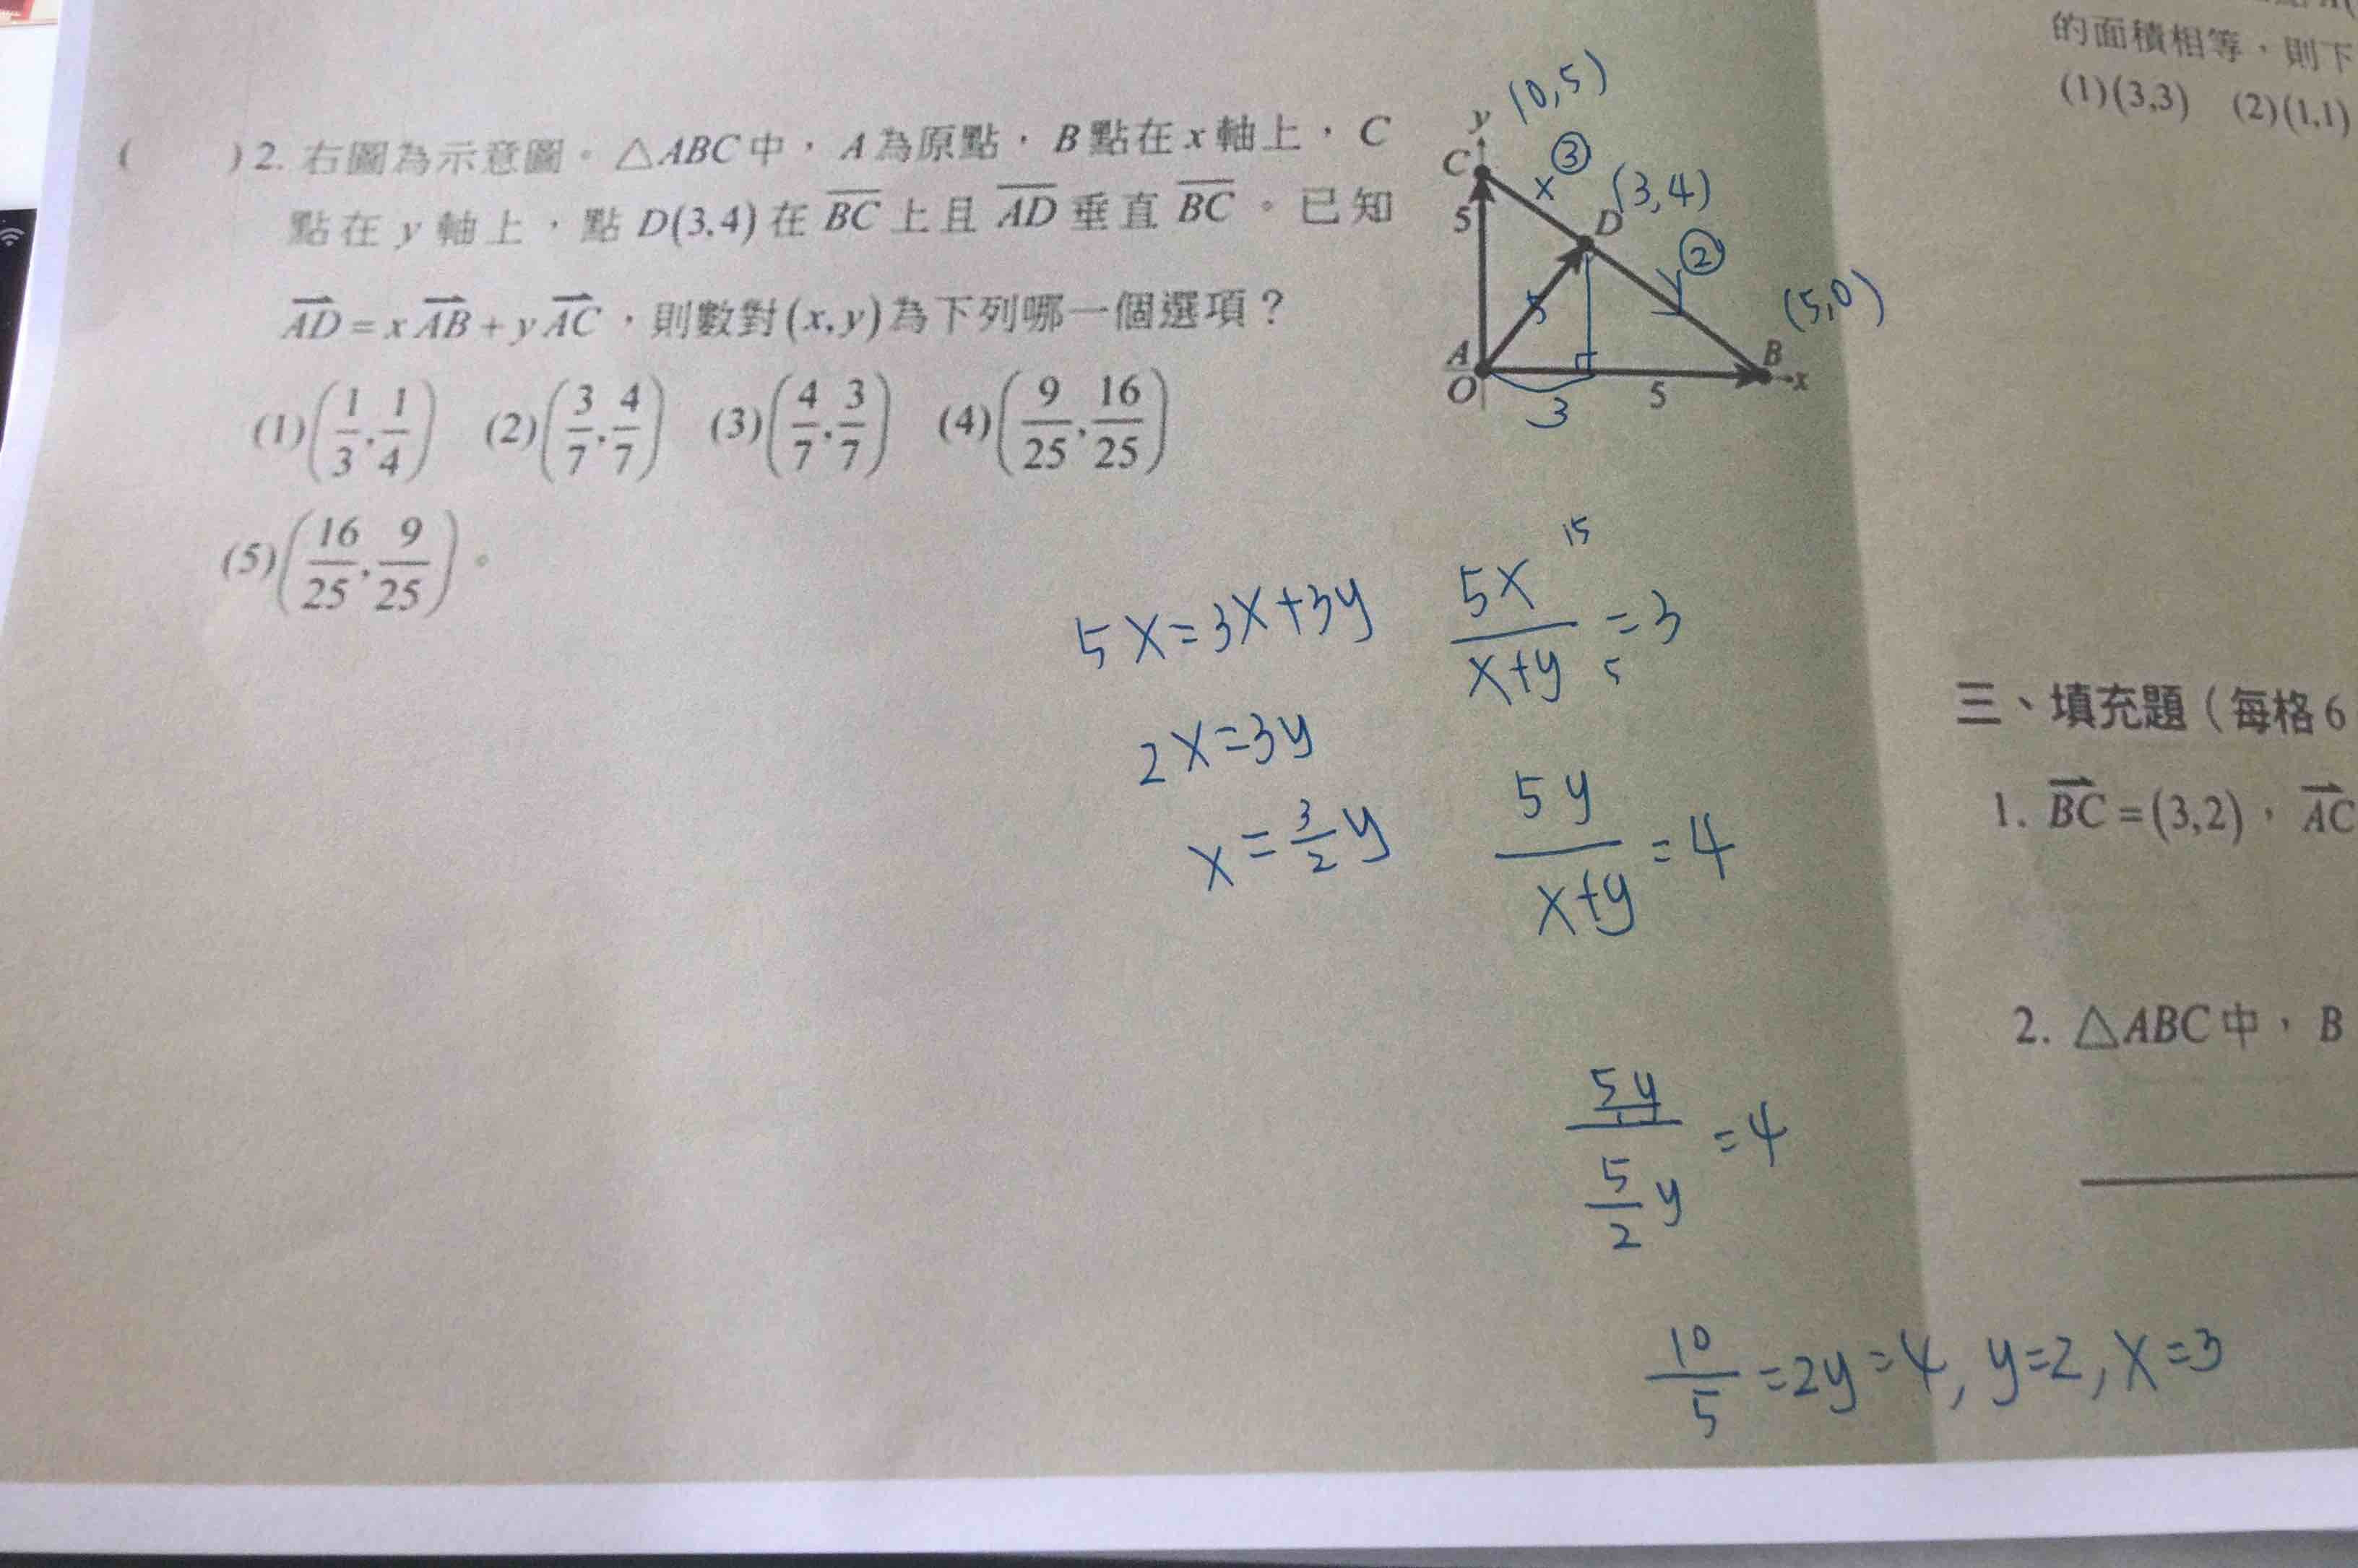 ( )2. 右圖為示意圖。△ABC中，A為原點，B點在x軸上，C
點在y軸上，點D(3,4)在BC上且AD垂直BC。已知
AD=xAB+yAC，則數對(x,y)為下列哪一個選項？
(1)(1/3,1/4) (2)(3/7,4/7) (3)(4/7,3/7) (4)(9/25,16/25)
(5)(16/25,9/25)。
y (0,5)
C x ③ (3,4)
5 D ②
5 (5,0)
A B
O 3 5 x
5x=3x+3y
2x=3y
x=3/2 y
15
5x/(x+y)=3
5
5y/(x+y)=4
5y/(5/2 y)=4
10/5=2y=4, y=2, x=3
的面積相等，則下
(1)(3,3) (2)(1,1)
三、填充題（每格6
1. BC=(3,2)，AC
2. △ABC中，B